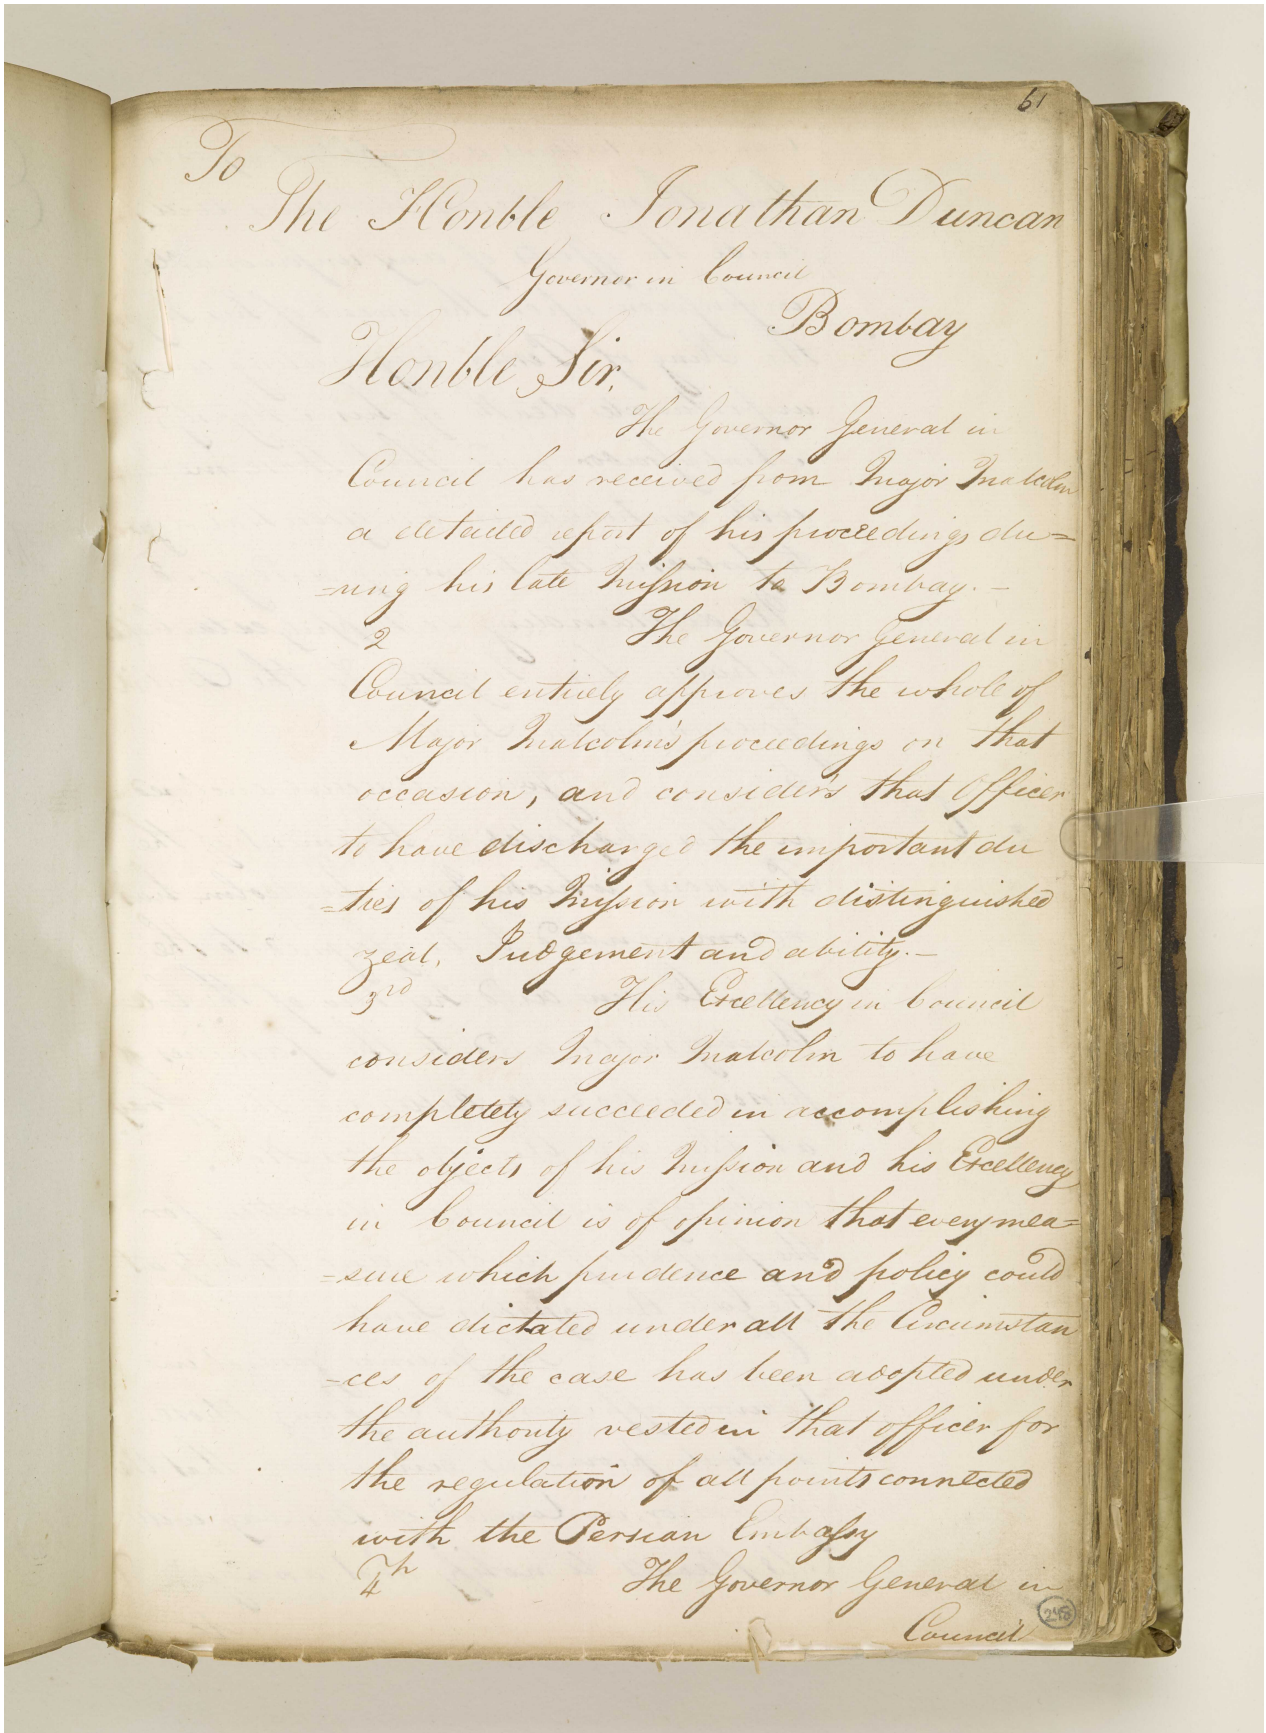 61
To
The Honble Jonathan Duncan
Governor in Council
Bombay
Honble Sir,
The Governor General in
Council has received from Major Malcolm
a detailed report of his proceedings du=
=ring his late Mission to Bombay.—
2 The Governor General in
Council entirely approves the whole of
Major Malcolm's proceedings on that
occasion, and considers that Officer
to have discharged the important du
=ties of his Mission with distinguished
zeal, Judgement and ability.—
3rd His Excellency in Council
considers Major Malcolm to have
completely succeeded in accomplishing
the objects of his Mission and his Excellency
in Council is of opinion that every mea=
=sure which prudence and policy could
have dictated under all the Circumstan
-ces of the case has been adopted under
the authority vested in that officer for
the regulation of all points connected
with the Persian Embassy
4th The Governor General in
Council
248